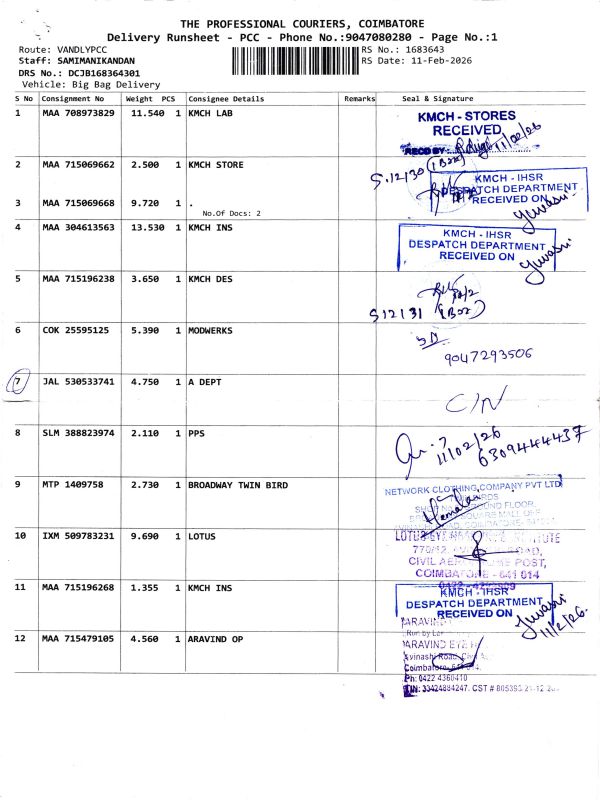 THE PROFESSIONAL COURIERS, COIMBATORE
Delivery Runsheet - PCC - Phone No.:9047080280 - Page No.:1
Route: VANDLYPCC
RS No.: 1683643
Staff: SAMIMANIKANDAN
RS Date: 11-Feb-2026
DRS No.: DCJB168364301
Vehicle: Big Bag Delivery
S No Consignment No Weight PCS Consignee Details Remarks Seal & Signature
1 MAA 708973829 11.540 1 KMCH LAB
KMCH - STORES
RECEIVED
RECD BY 11/02/26
2 MAA 715069662 2.500 1 KMCH STORE
S.12130 (Box)
KMCH - IHSR
DESPATCH DEPARTMENT
RECEIVED ON
3 MAA 715069668 9.720 1 .
No.Of Docs: 2
Yuvasri
4 MAA 304613563 13.530 1 KMCH INS
KMCH - IHSR
DESPATCH DEPARTMENT
RECEIVED ON
Yuvasri
5 MAA 715196238 3.650 1 KMCH DES
S12131 (Box)
6 COK 25595125 5.390 1 MODWERKS
9047293506
7 JAL 530533741 4.750 1 A DEPT
C/N
8 SLM 388823974 2.110 1 PPS
11/02/26
6309444437
9 MTP 1409758 2.730 1 BROADWAY TWIN BIRD
NETWORK CLOTHING COMPANY PVT LTD
10 IXM 509783231 9.690 1 LOTUS
LOTUS EYE
CIVIL POST,
COIMBATORE - 641 014
11 MAA 715196268 1.355 1 KMCH INS
KMCH - IHSR
DESPATCH DEPARTMENT
RECEIVED ON
Yuvasri
11/2/26.
12 MAA 715479105 4.560 1 ARAVIND OP
ARAVIND EYE
Avinashi Road,
Coimbatore
Ph: 0422 4360410
TIN: 33424884247. CST # 805393